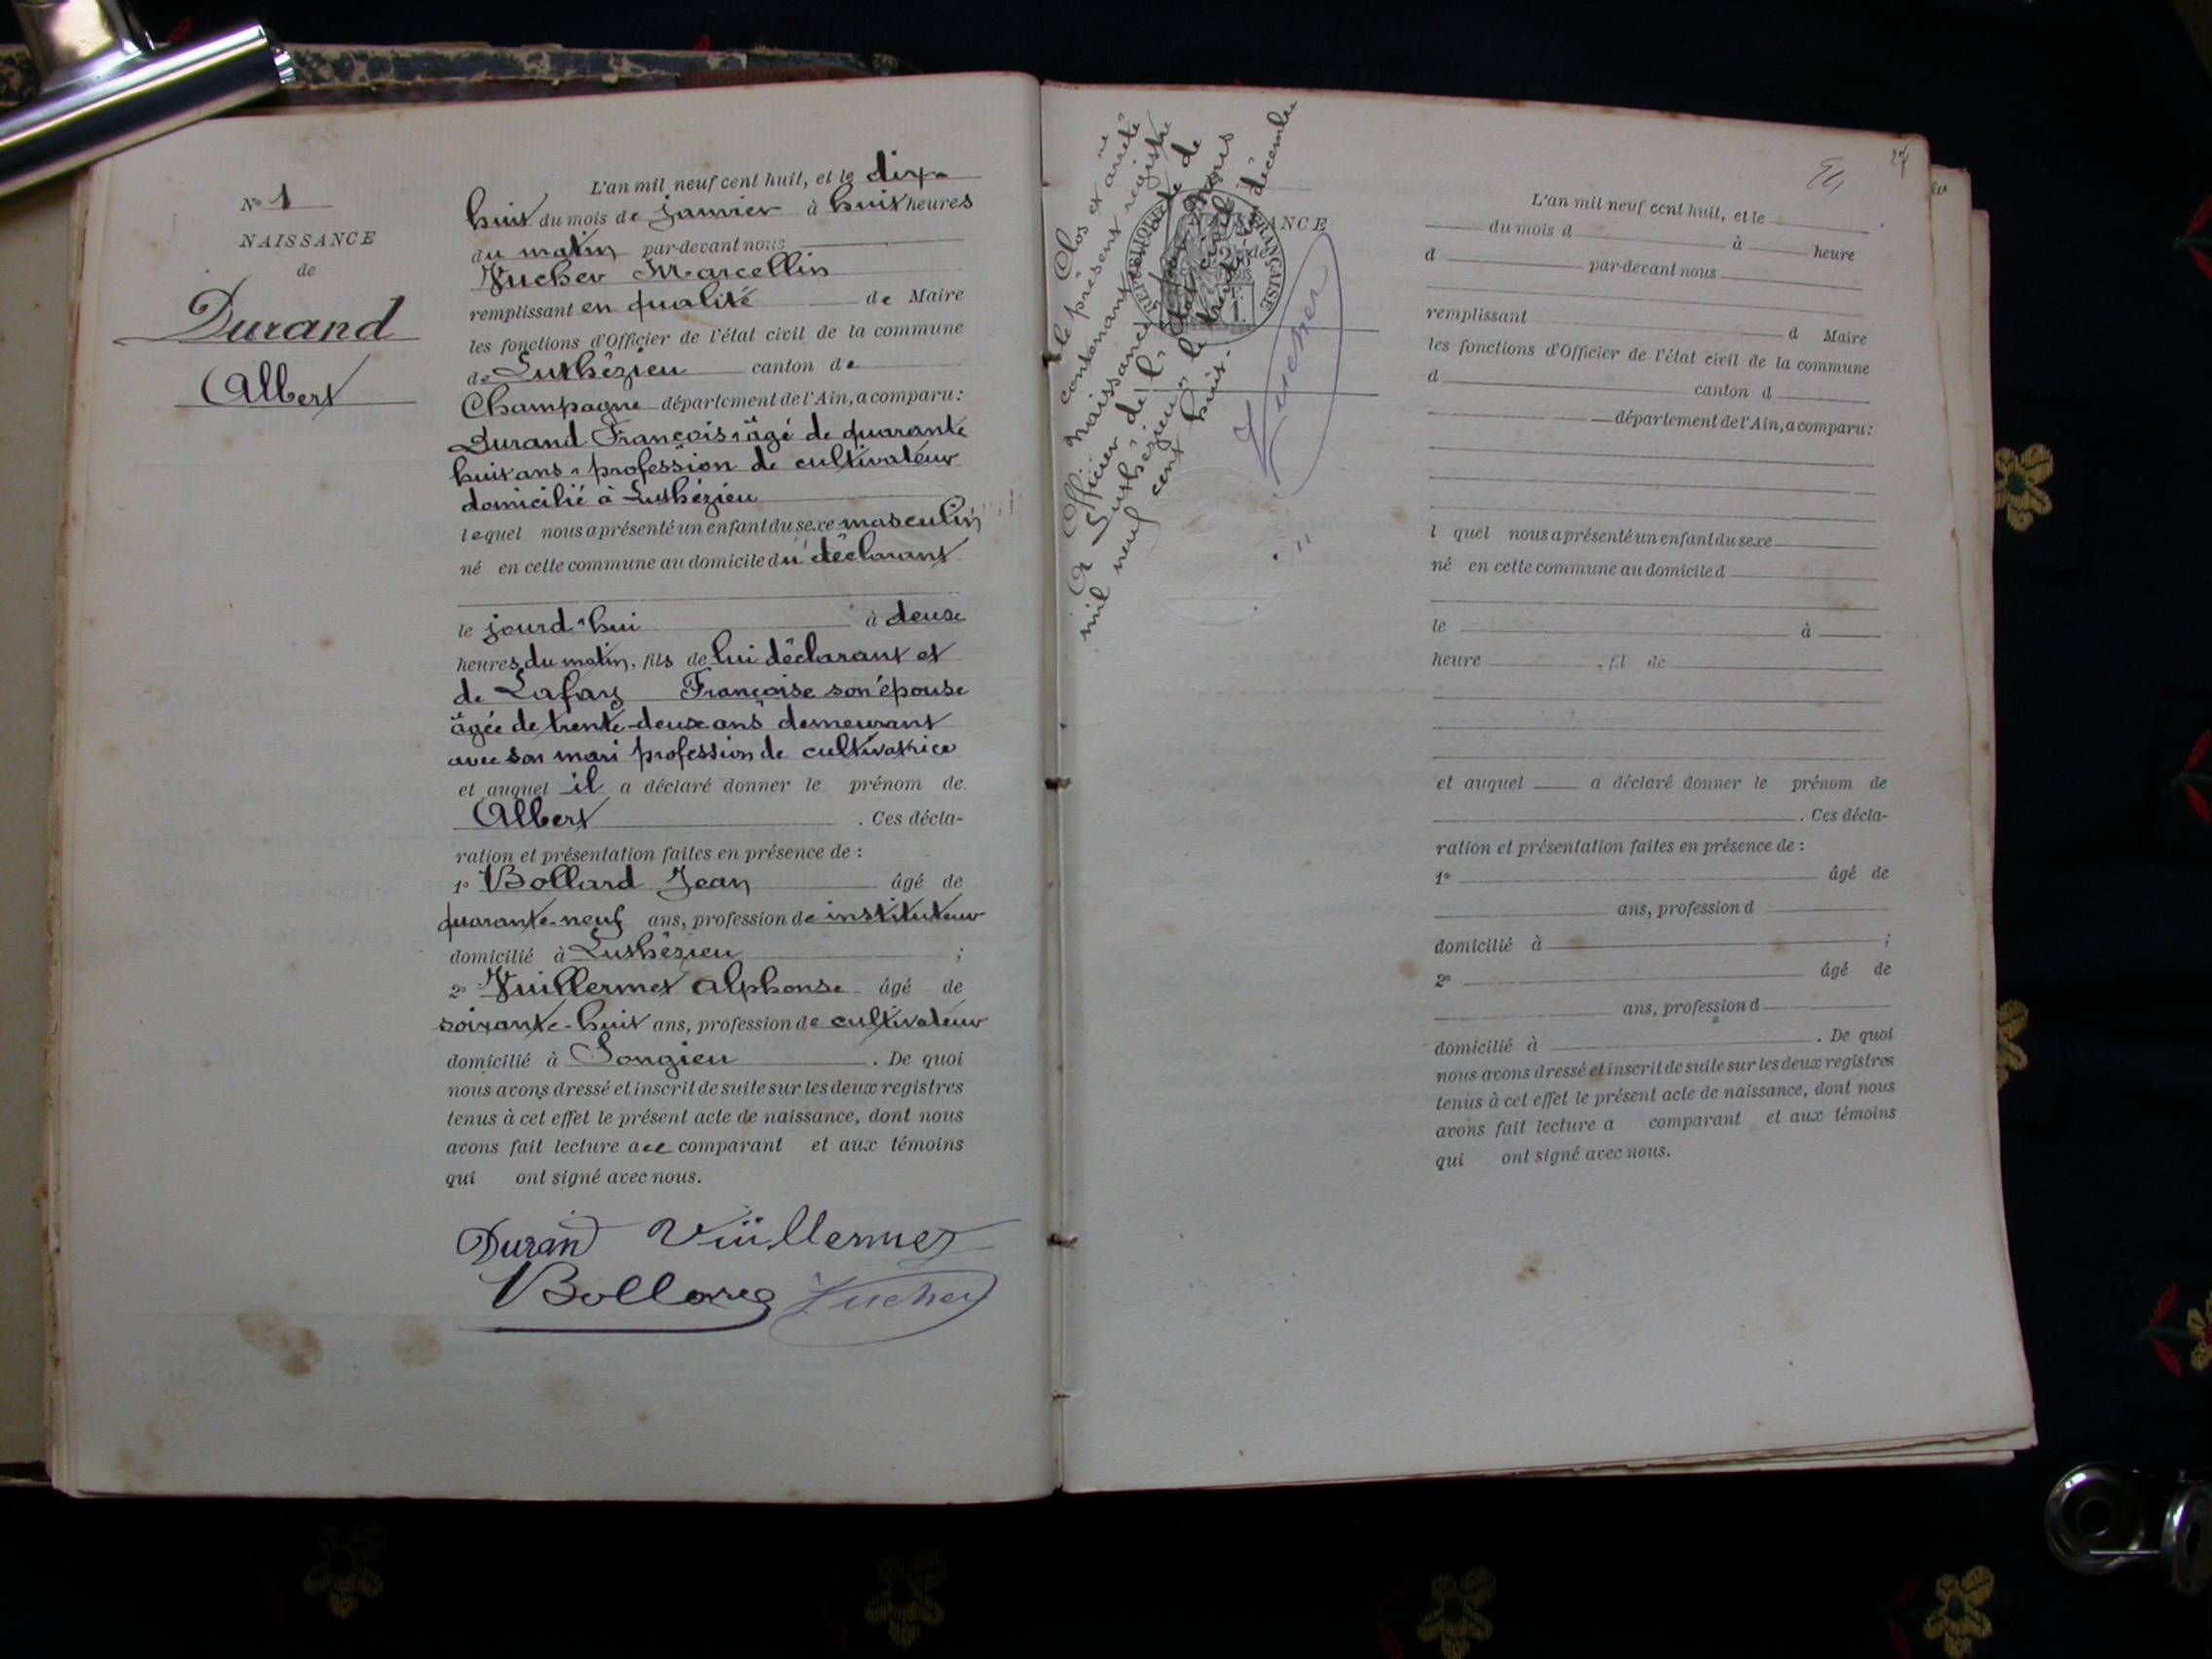 N° 1
NAISSANCE
de
Durand
Albert
L'an mil neuf cent huit, et le dix-
huit du mois de janvier à huit heures
du matin par-devant nous
Vucher Marcellin
remplissant en qualité de Maire
les fonctions d'Officier de l'état civil de la commune
de Luthézieu canton de
Champagne département de l'Ain, a comparu :
Durand François âgé de quarante
huit ans profession de cultivateur
domicilié à Luthézieu
lequel nous a présenté un enfant du sexe masculin
né en cette commune au domicile du déclarant
le jourd'hui à deux
heures du matin, fils de lui déclarant et
de Lafay Françoise son épouse
âgée de trente-deux ans demeurant
avec son mari profession de cultivatrice
et auquel il a déclaré donner le prénom de
Albert . Ces décla-
ration et présentation faites en présence de :
1° Bollard Jean âgé de
quarante-neuf ans, profession de instituteur
domicilié à Luthézieu ;
2° Vuillermet Alphonse âgé de
soixante-huit ans, profession de cultivateur
domicilié à Songieu . De quoi
nous avons dressé et inscrit de suite sur les deux registres
tenus à cet effet le présent acte de naissance, dont nous
avons fait lecture au comparant et aux témoins
qui ont signé avec nous.
Durand Vuillermet
Bollard Vucher
Clos et arrêté
le présent registre
contenant acte de
naissance par nous
Officier de l'état civil
A Luthézieu, le décembre
mil neuf cent huit.
Vucher
NAISSANCE
de
RÉPUBLIQUE FRANÇAISE
L'an mil neuf cent huit, et le
du mois d à heure
d par-devant nous
remplissant d Maire
les fonctions d'Officier de l'état civil de la commune
d canton d
département de l'Ain, a comparu :
l quel nous a présenté un enfant du sexe
né en cette commune au domicile d
le à
heure , fil de
et auquel a déclaré donner le prénom de
. Ces décla-
ration et présentation faites en présence de :
1° âgé de
ans, profession d
domicilié à ;
2° âgé de
ans, profession d
domicilié à . De quoi
nous avons dressé et inscrit de suite sur les deux registres
tenus à cet effet le présent acte de naissance, dont nous
avons fait lecture a comparant et aux témoins
qui ont signé avec nous.